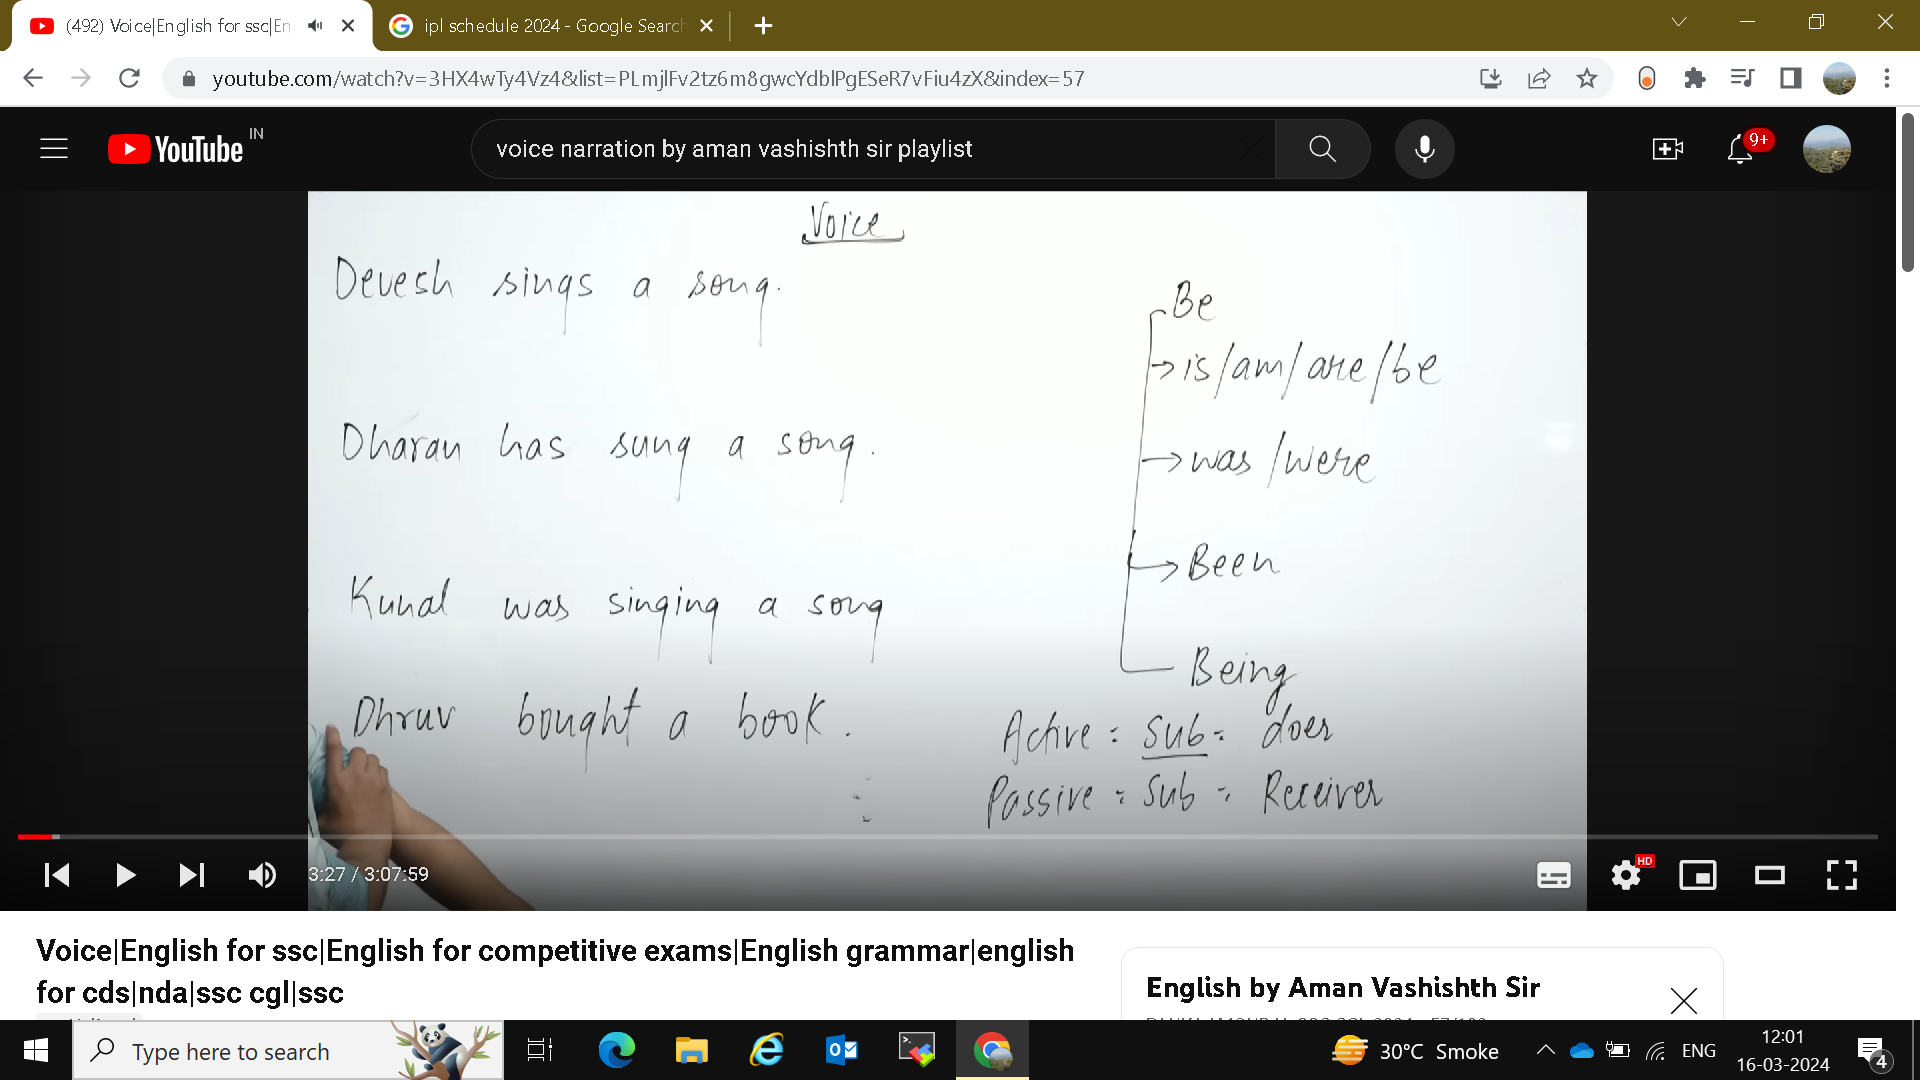 (492) Voice|English for ssc|En
ipl schedule 2024 - Google Search
youtube.com/watch?v=3HX4wTy4Vz4&list=PLmjlFv2tz6m8gwcYdblPgESeR7vFiu4zX&index=57
YouTube IN
voice narration by aman vashishth sir playlist
9+
Voice
Devesh sings a song.
Be
is/am/are/be
Dharan has sung a song.
was/were
Been
Kunal was singing a song
Being
Dhruv bought a book.
Active = Sub = doer
Passive = Sub = Receiver
3:27 / 3:07:59
HD
Voice|English for ssc|English for competitive exams|English grammar|english
for cds|nda|ssc cgl|ssc
English by Aman Vashishth Sir
Type here to search
30°C Smoke
ENG
12:01
16-03-2024
4